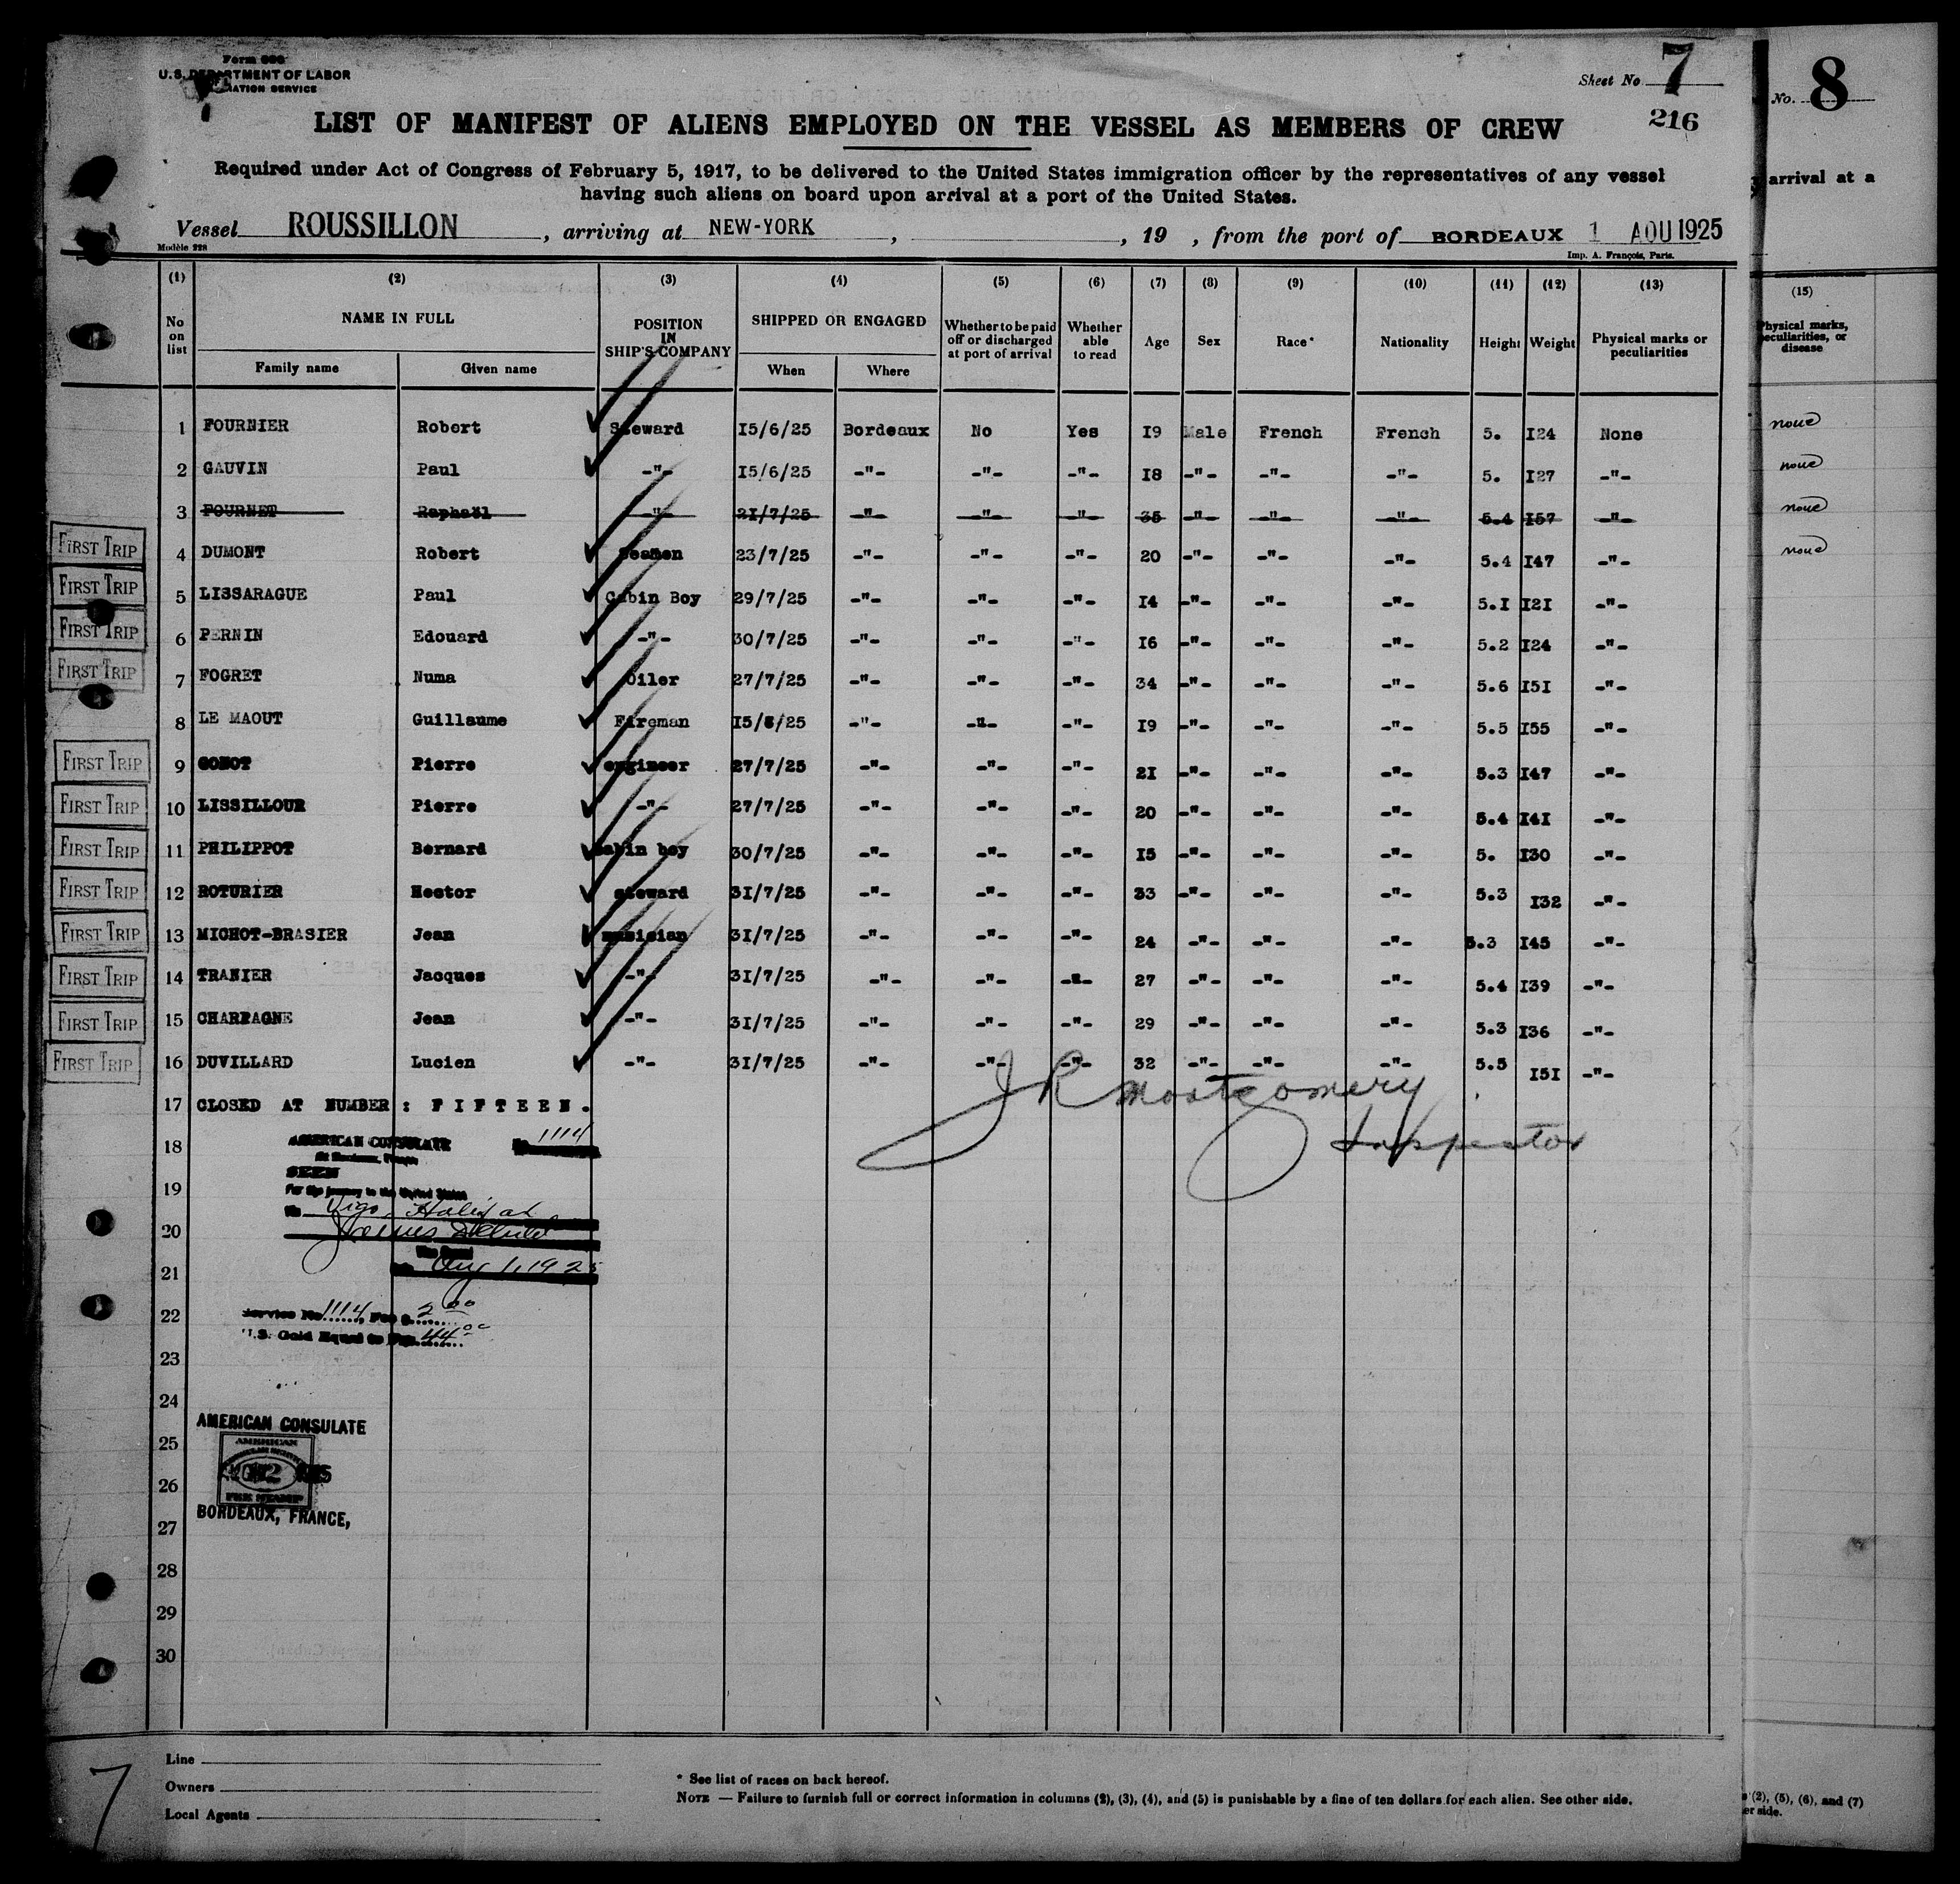 Form 680
U.S. DEPARTMENT OF LABOR
IMMIGRATION SERVICE
Sheet No 7
216
LIST OF MANIFEST OF ALIENS EMPLOYED ON THE VESSEL AS MEMBERS OF CREW
Required under Act of Congress of February 5, 1917, to be delivered to the United States immigration officer by the representatives of any vessel
having such aliens on board upon arrival at a port of the United States.
Vessel ROUSSILLON, arriving at NEW-YORK, , 19 , from the port of BORDEAUX 1 AOU 1925
Modèle 228
Imp. A. François, Paris.
(1) (2) (3) (4) (5) (6) (7) (8) (9) (10) (11) (12) (13)
No on list NAME IN FULL Family name Given name POSITION IN SHIP'S COMPANY SHIPPED OR ENGAGED When Where Whether to be paid off or discharged at port of arrival Whether able to read Age Sex Race* Nationality Height Weight Physical marks or peculiarities
1 FOURNIER Robert Steward 15/6/25 Bordeaux No Yes 19 Male French French 5. 124 None
2 GAUVIN Paul -"- 15/6/25 -"- -"- -"- 18 -"- -"- -"- 5. 127 -"-
3 FOURNET Raphaël -"- 21/7/25 -"- -"- -"- 35 -"- -"- -"- 5.4 157 -"-
FIRST TRIP 4 DUMONT Robert Seamen 23/7/25 -"- -"- -"- 20 -"- -"- -"- 5.4 147 -"-
FIRST TRIP 5 LISSARAGUE Paul Cabin Boy 29/7/25 -"- -"- -"- 14 -"- -"- -"- 5.1 121 -"-
FIRST TRIP 6 PERNIN Edouard -"- 30/7/25 -"- -"- -"- 16 -"- -"- -"- 5.2 124 -"-
FIRST TRIP 7 FOGRET Numa Oiler 27/7/25 -"- -"- -"- 34 -"- -"- -"- 5.6 151 -"-
8 LE MAOUT Guillaume Fireman 15/6/25 -"- -"- -"- 19 -"- -"- -"- 5.5 155 -"-
FIRST TRIP 9 GONOT Pierre engineer 27/7/25 -"- -"- -"- 21 -"- -"- -"- 5.3 147 -"-
FIRST TRIP 10 LISSILLOUR Pierre -"- 27/7/25 -"- -"- -"- 20 -"- -"- -"- 5.4 141 -"-
FIRST TRIP 11 PHILIPPOT Bernard cabin boy 30/7/25 -"- -"- -"- 15 -"- -"- -"- 5. 130 -"-
FIRST TRIP 12 ROTURIER Hector steward 31/7/25 -"- -"- -"- 33 -"- -"- -"- 5.3 132 -"-
FIRST TRIP 13 MICHOT-BRASIER Jean musician 31/7/25 -"- -"- -"- 24 -"- -"- -"- 5.3 145 -"-
FIRST TRIP 14 TRANIER Jacques -"- 31/7/25 -"- -"- -"- 27 -"- -"- -"- 5.4 139 -"-
FIRST TRIP 15 CHARPAGNE Jean -"- 31/7/25 -"- -"- -"- 29 -"- -"- -"- 5.3 136 -"-
FIRST TRIP 16 DUVILLARD Lucien -"- 31/7/25 -"- -"- -"- 32 -"- -"- -"- 5.5 151 -"-
17 CLOSED AT NUMBER : FIFTEEN.
J R Montgomery
Inspector
18 AMERICAN CONSULATE No 1114
At Bordeaux, France
SEEN
19 For the journey to the United States
Via Vigo, Halifax
20
Vice Consul
21 Aug 1, 1925
22 Service No. 1114, Fee $ 2.00
U.S. Gold Equal to Frs. 44.00
23
24
AMERICAN CONSULATE
25 AMERICAN
26 AUG 2 1925
FEE STAMP
BORDEAUX, FRANCE,
27
28
29
30
Line
Owners
Local Agents
* See list of races on back hereof.
NOTE — Failure to furnish full or correct information in columns (2), (3), (4), and (5) is punishable by a fine of ten dollars for each alien. See other side.
7
No. 8
arrival at a
(15)
Physical marks, peculiarities, or disease
none
none
none
none
(2), (5), (6), and (7)
er side.